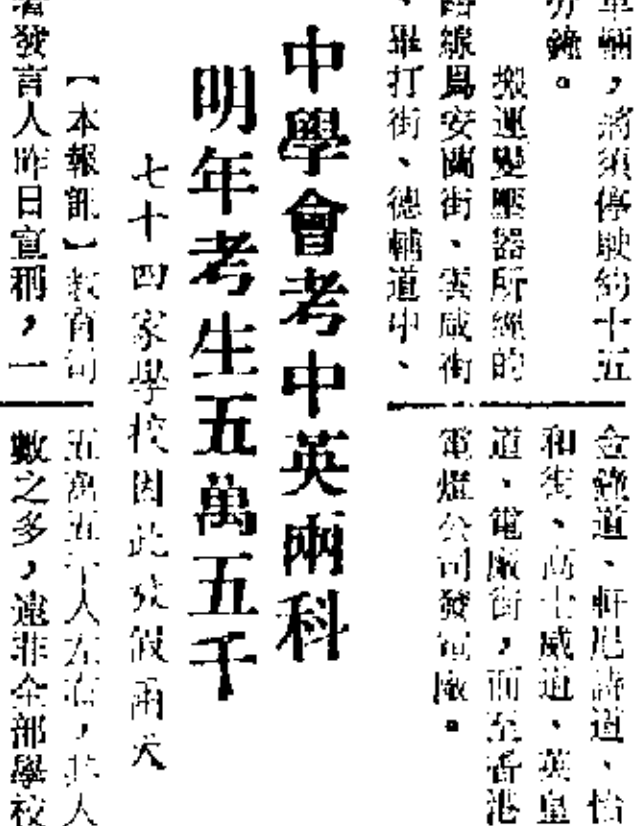 車輛，將須停駛約十五
分鐘。
搬運變壓器所經的
路線爲安蘭街、雲咸街
、畢打街、德輔道中、
金鐘道、軒尼詩道、怡
和街、高士威道、英皇
道、電廠街，而至香港
電燈公司發電廠。
中學會考中英兩科
明年考生五萬五千
七十四家學校因此放假兩天
【本報訊】教育司
署發言人昨日宣稱，一
五萬五千人左右，其人
數之多，遠非全部學校